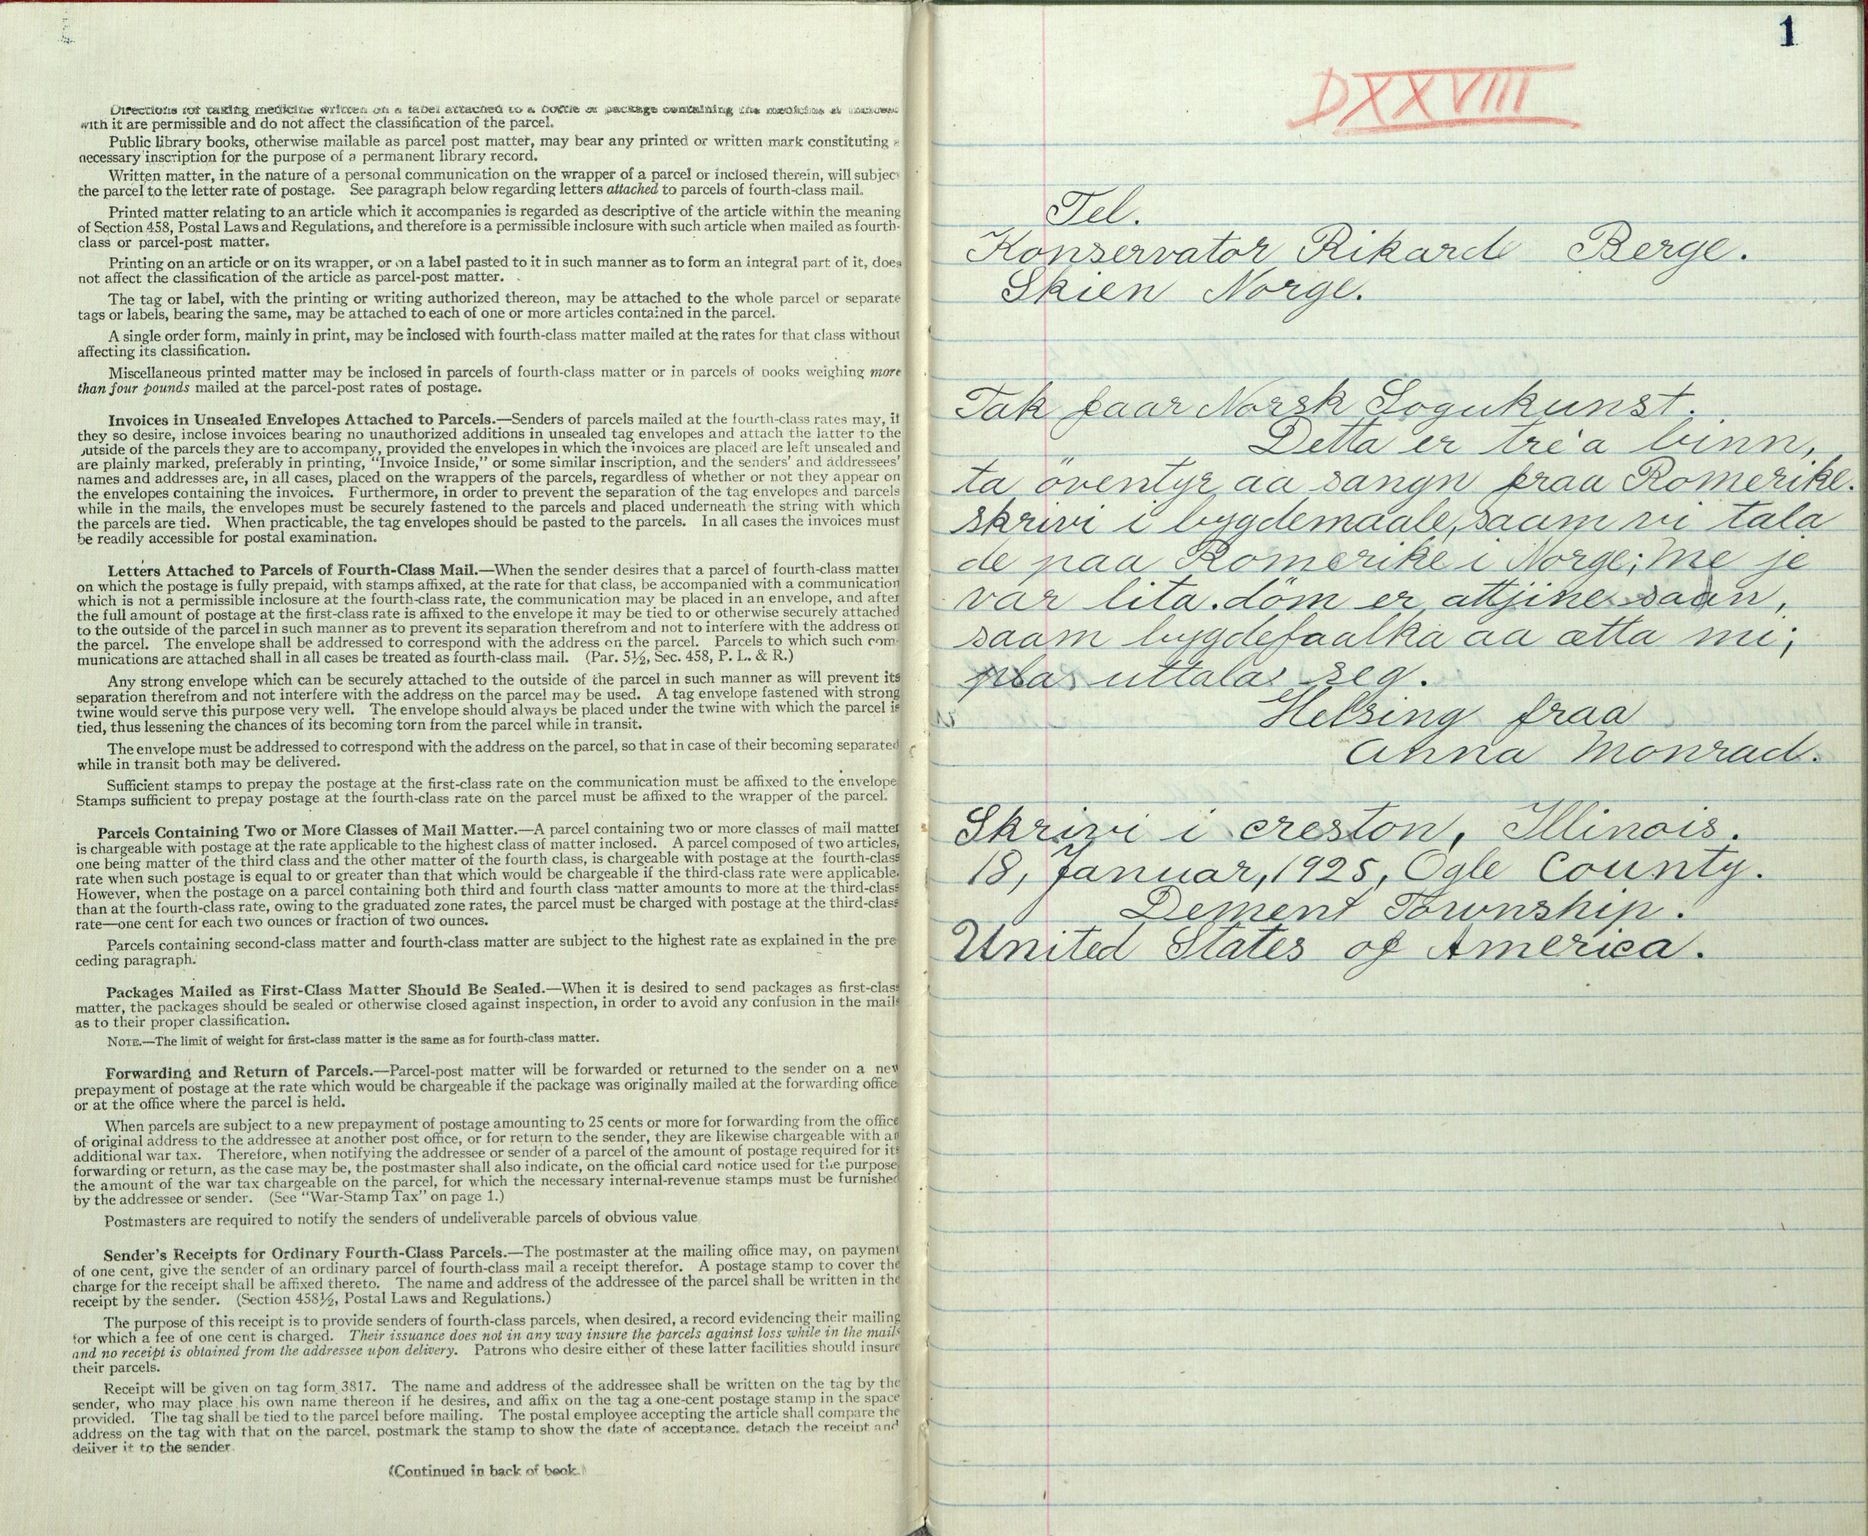 Directions for taking medicine written on a label attached to a bottle or package containing the medicine or inclosed
with it are permissible and do not affect the classification of the parcel.
Public library books, otherwise mailable as parcel post matter, may bear any printed or written mark constituting a
necessary inscription for the purpose of a permanent library record.
Written matter, in the nature of a personal communication on the wrapper of a parcel or inclosed therein, will subject
the parcel to the letter rate of postage. See paragraph below regarding letters attached to parcels of fourth-class mail.
Printed matter relating to an article which it accompanies is regarded as descriptive of the article within the meaning
of Section 458, Postal Laws and Regulations, and therefore is a permissible inclosure with such article when mailed as fourth-
class or parcel-post matter.
Printing on an article or on its wrapper, or on a label pasted to it in such manner as to form an integral part of it, does
not affect the classification of the article as parcel-post matter.
The tag or label, with the printing or writing authorized thereon, may be attached to the whole parcel or separate
tags or labels, bearing the same, may be attached to each of one or more articles contained in the parcel.
A single order form, mainly in print, may be inclosed with fourth-class matter mailed at the rates for that class without
affecting its classification.
Miscellaneous printed matter may be inclosed in parcels of fourth-class matter or in parcels of books weighing more
than four pounds mailed at the parcel-post rates of postage.
Invoices in Unsealed Envelopes Attached to Parcels.—Senders of parcels mailed at the fourth-class rates may, if
they so desire, inclose invoices bearing no unauthorized additions in unsealed tag envelopes and attach the latter to the
outside of the parcels they are to accompany, provided the envelopes in which the invoices are placed are left unsealed and
are plainly marked, preferably in printing, “Invoice Inside,” or some similar inscription, and the senders' and addressees'
names and addresses are, in all cases, placed on the wrappers of the parcels, regardless of whether or not they appear on
the envelopes containing the invoices. Furthermore, in order to prevent the separation of the tag envelopes and parcels
while in the mails, the envelopes must be securely fastened to the parcels and placed underneath the string with which
the parcels are tied. When practicable, the tag envelopes should be pasted to the parcels. In all cases the invoices must
be readily accessible for postal examination.
Letters Attached to Parcels of Fourth-Class Mail.—When the sender desires that a parcel of fourth-class matter
on which the postage is fully prepaid, with stamps affixed, at the rate for that class, be accompanied with a communication
which is not a permissible inclosure at the fourth-class rate, the communication may be placed in an envelope, and after
the full amount of postage at the first-class rate is affixed to the envelope it may be tied to or otherwise securely attached
to the outside of the parcel in such manner as to prevent its separation therefrom and not to interfere with the address on
the parcel. The envelope shall be addressed to correspond with the address on the parcel. Parcels to which such com-
munications are attached shall in all cases be treated as fourth-class mail. (Par. 5½, Sec. 458, P. L. & R.)
Any strong envelope which can be securely attached to the outside of the parcel in such manner as will prevent its
separation therefrom and not interfere with the address on the parcel may be used. A tag envelope fastened with strong
twine would serve this purpose very well. The envelope should always be placed under the twine with which the parcel is
tied, thus lessening the chances of its becoming torn from the parcel while in transit.
The envelope must be addressed to correspond with the address on the parcel, so that in case of their becoming separated
while in transit both may be delivered.
Sufficient stamps to prepay the postage at the first-class rate on the communication must be affixed to the envelope
Stamps sufficient to prepay postage at the fourth-class rate on the parcel must be affixed to the wrapper of the parcel.
Parcels Containing Two or More Classes of Mail Matter.—A parcel containing two or more classes of mail matter
is chargeable with postage at the rate applicable to the highest class of matter inclosed. A parcel composed of two articles,
one being matter of the third class and the other matter of the fourth class, is chargeable with postage at the fourth-class
rate when such postage is equal to or greater than that which would be chargeable if the third-class rate were applicable.
However, when the postage on a parcel containing both third and fourth class matter amounts to more at the third-class
than at the fourth-class rate, owing to the graduated zone rates, the parcel must be charged with postage at the third-class
rate—one cent for each two ounces or fraction of two ounces.
Parcels containing second-class matter and fourth-class matter are subject to the highest rate as explained in the pre
ceding paragraph.
Packages Mailed as First-Class Matter Should Be Sealed.—When it is desired to send packages as first-class
matter, the packages should be sealed or otherwise closed against inspection, in order to avoid any confusion in the mails
as to their proper classification.
NOTE.—The limit of weight for first-class matter is the same as for fourth-class matter.
Forwarding and Return of Parcels.—Parcel-post matter will be forwarded or returned to the sender on a new
prepayment of postage at the rate which would be chargeable if the package was originally mailed at the forwarding office
or at the office where the parcel is held.
When parcels are subject to a new prepayment of postage amounting to 25 cents or more for forwarding from the office
of original address to the addressee at another post office, or for return to the sender, they are likewise chargeable with an
additional war tax. Therefore, when notifying the addressee or sender of a parcel of the amount of postage required for its
forwarding or return, as the case may be, the postmaster shall also indicate, on the official card notice used for the purpose,
the amount of the war tax chargeable on the parcel, for which the necessary internal-revenue stamps must be furnished
by the addressee or sender. (See “War-Stamp Tax” on page 1.)
Postmasters are required to notify the senders of undeliverable parcels of obvious value
Sender's Receipts for Ordinary Fourth-Class Parcels.—The postmaster at the mailing office may, on payment
of one cent, give the sender of an ordinary parcel of fourth-class mail a receipt therefor. A postage stamp to cover the
charge for the receipt shall be affixed thereto. The name and address of the addressee of the parcel shall be written in the
receipt by the sender. (Section 458½, Postal Laws and Regulations.)
The purpose of this receipt is to provide senders of fourth-class parcels, when desired, a record evidencing their mailing
for which a fee of one cent is charged. Their issuance does not in any way insure the parcels against loss while in the mails
and no receipt is obtained from the addressee upon delivery. Patrons who desire either of these latter facilities should insure
their parcels.
Receipt will be given on tag form 3817. The name and address of the addressee shall be written on the tag by the
sender, who may place his own name thereon if he desires, and affix on the tag a one-cent postage stamp in the space
provided. The tag shall be tied to the parcel before mailing. The postal employee accepting the article shall compare the
address on the tag with that on the parcel, postmark the stamp to show the date of acceptance, detach the receipt and
deliver it to the sender.
(Continued in back of book.)
1
DXXVIII
Tel.
Konservator Rikard Berge.
Skien Norge.
Tak faar Norsk Sogukunst.
Detta er tre'a binn,
ta öventyr aa sangn fraa Romerike.
skrivi i bygdemaale, saam vi tala
de paa Romerike i Norge; me je
var lita. döm er attjine saan,
saam bygdefaalka aa ætta mi;
plar uttala seg.
Helsing fraa
Anna Monrad.
Skrivi i Creston, Illinois.
18, Januar, 1925, Ogle County.
Dement Township.
United States of America.